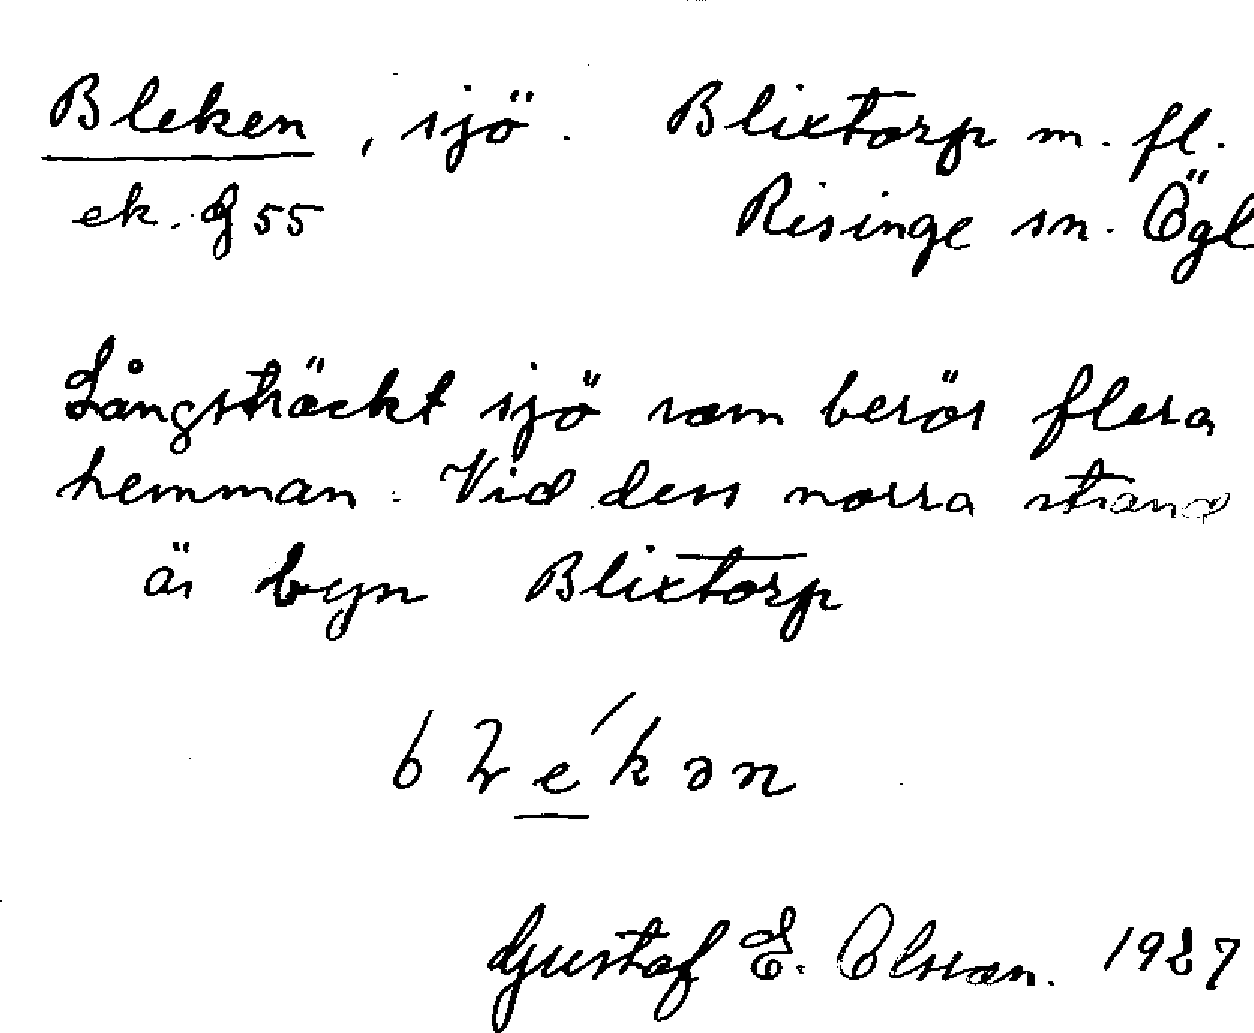 Bleken, sjö. Blixtorp m. fl.
ek. J 55 Risinge sn. Ögl
Långsträckt sjö som berör flera
hemman. Vid dess norra strand
är byn Blixtorp
Gustaf E. Olsson. 1927